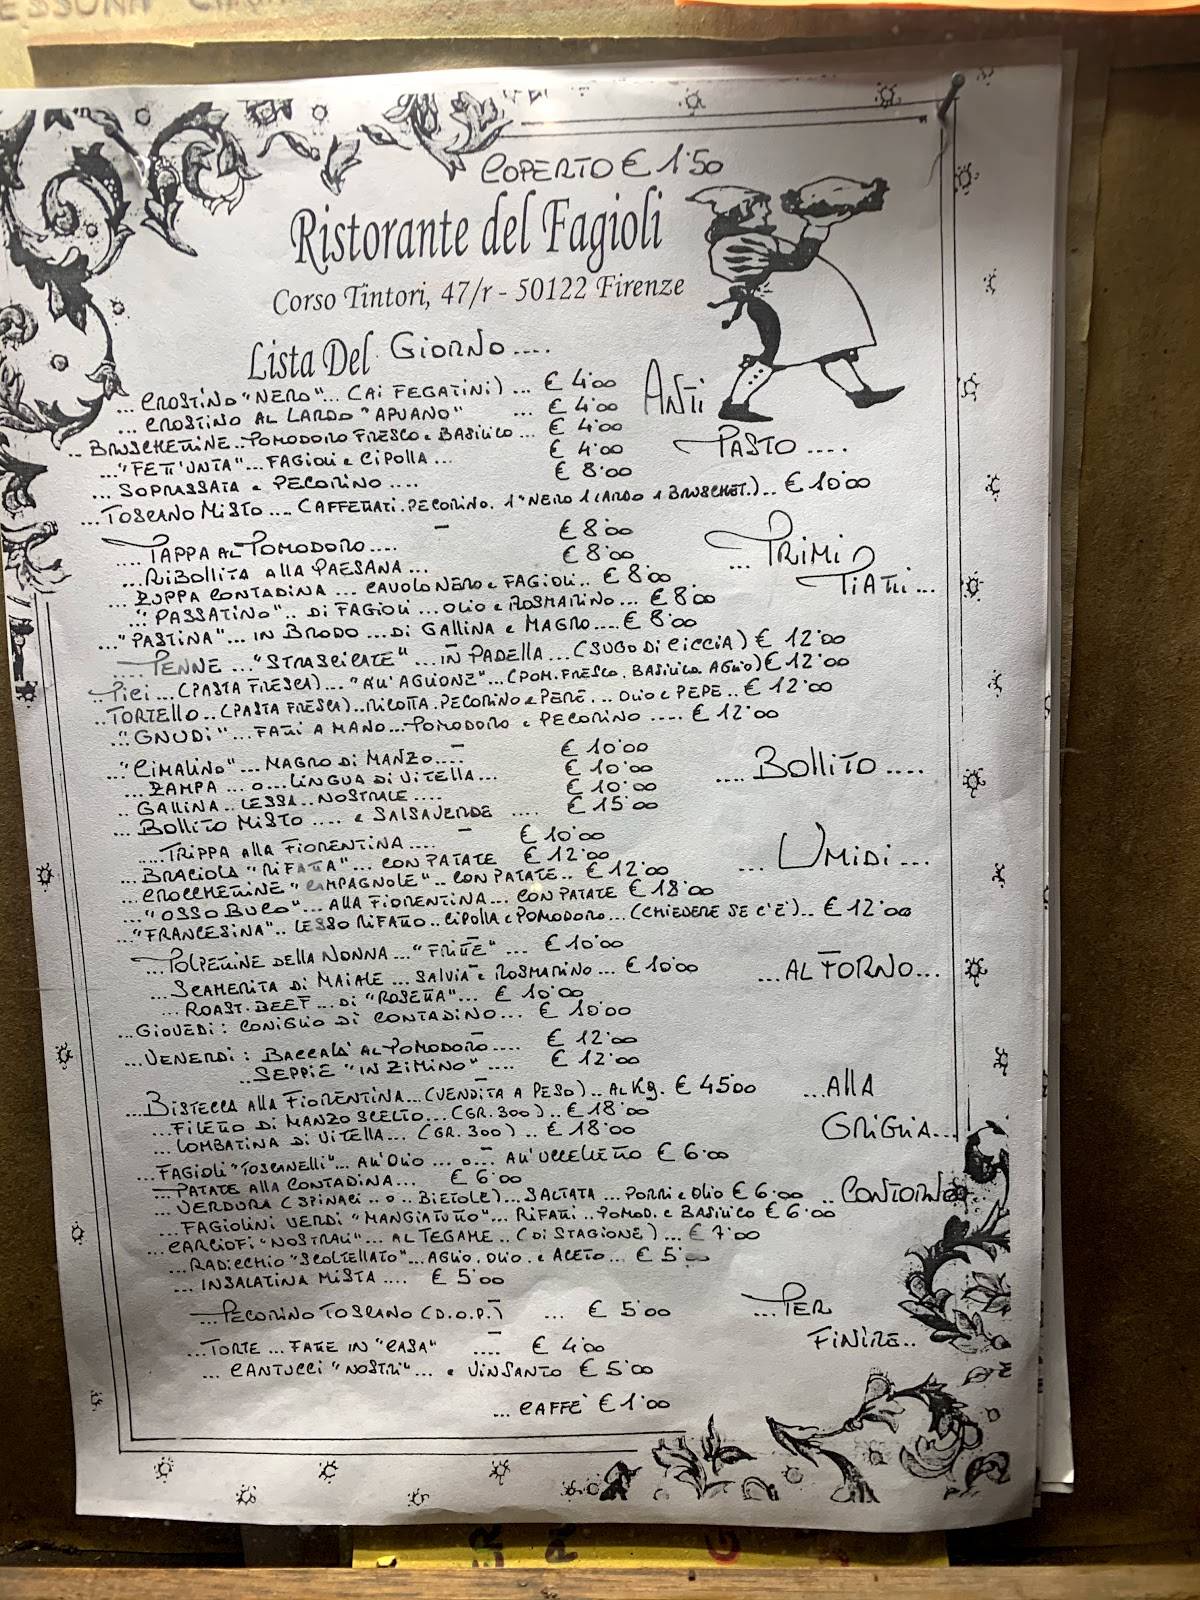 COPERTO € 1.50
Ristorante del Fagioli
Corso Tintori, 47/r - 50122 Firenze
Lista Del GIORNO....
... CROSTINO "NERO"... (AI FEGATINI)... € 4.00
ANTI
... CROSTINO AL LARDO "APUANO" ... € 4.00
.. BRUSCHETTINE.. POMODORO FRESCO e BASILICO... € 4.00
PASTO....
..."FETT'UNTA"... FAGIOLI e CIPOLLA... € 4.00
... SOPRASSATA e PECORINO.... € 8.00
...TOSCANO MISTO.... CAFFETTATI. PECORINO. 1"NERO 1 LARDO 1 BRUSCHET.).. € 10.00
... PAPPA AL POMODORO.... € 8.00
... PRIMI
...RIBOLLITA ALLA PAESANA... € 8.00
PIATTI...
... ZUPPA CONTADINA ... CAVOLO NERO e FAGIOLI.. € 8.00
..."PASSATINO".. DI FAGIOLI ... OLIO e ROSMARINO... € 8.00
..."PASTINA"... IN BRODO ... DI GALLINA e MAGRO.... € 8.00
.... PENNE ... "STRASCICATE" ... IN PADELLA ... (SUGO DI CICCIA) € 12.00
.. PICI ... (PASTA FRESCA)... "ALL'AGLIONE"... (POM. FRESCO. BASILICO. AGLIO) € 12.00
... TORTELLO.. (PASTA FRESCA).. RICOTTA. PECORINO e PERE... OLIO e PEPE.. € 12.00
..."GNUDI"... FATTI A MANO... POMODORO e PECORINO .... € 12.00
..."CIMALINO"... MAGRO DI MANZO.... € 10.00
.... BOLLITO....
... ZAMPA ... o... LINGUA DI VITELLA... € 10.00
.. GALLINA.. LESSA.. NOSTRALE.... € 10.00
... BOLLITO MISTO .... e SALSAVERDE .... € 15.00
.....TRIPPA ALLA FIORENTINA.... € 10.00
... UMIDI...
... BRACIOLA "RIFATTA"... CON PATATE € 12.00
... CROCCHETTINE "CAMPAGNOLE".. CON PATATE.. € 12.00
..."OSSO BUCO"... ALLA FIORENTINA... CON PATATE € 18.00
..."FRANCESINA".. LESSO RIFATTO.. CIPOLLA e POMODORO... (CHIEDERE SE C'E').. € 12.00
... POLPETTINE DELLA NONNA..."FRITTE"... € 10.00
...AL FORNO...
... SCAMERITA DI MAIALE... SALVIA e ROSMARINO... € 10.00
... ROAST.BEEF ... DI "ROSETTA"... € 10.00
...GIOVEDI: CONIGLIO DI CONTADINO... € 10.00
...VENERDI: BACCALA' AL POMODORO.... € 12.00
..SEPPIE "IN ZIMINO".... € 12.00
...BISTECCA ALLA FIORENTINA... (VENDITA A PESO).. AL Kg. € 45.00
...ALLA
... FILETTO DI MANZO SCELTO... (GR. 300).. € 18.00
GRIGLIA...
... LOMBATINA DI VITELLA... (GR. 300).. € 18.00
...FAGIOLI "TOSCANELLI"... ALL'OLIO ... o... ALL'UCCELLETTO € 6.00
... PATATE ALLA CONTADINA... € 6.00
... VERDURA (SPINACI .. o .. BIETOLE)... SALTATA ... PORRI e OLIO € 6.00
.. CONTORNO
... FAGIOLINI VERDI "MANGIATUTTO"... RIFATTI.. POMOD. e BASILICO € 6.00
...CARCIOFI "NOSTRALI"... AL TEGAME.. (DI STAGIONE)... € 7.00
...RADICCHIO "SCOLTELLATO"... AGLIO. OLIO. e ACETO... € 5.00
... INSALATINA MISTA .... € 5.00
... PECORINO TOSCANO (D.O.P.) ... € 5.00
...PER
FINIRE..
...TORTE ... FATTE IN "CASA" .... € 4.00
... CANTUCCI "NOSTRI"... e VINSANTO € 5.00
... CAFFE' € 1.00